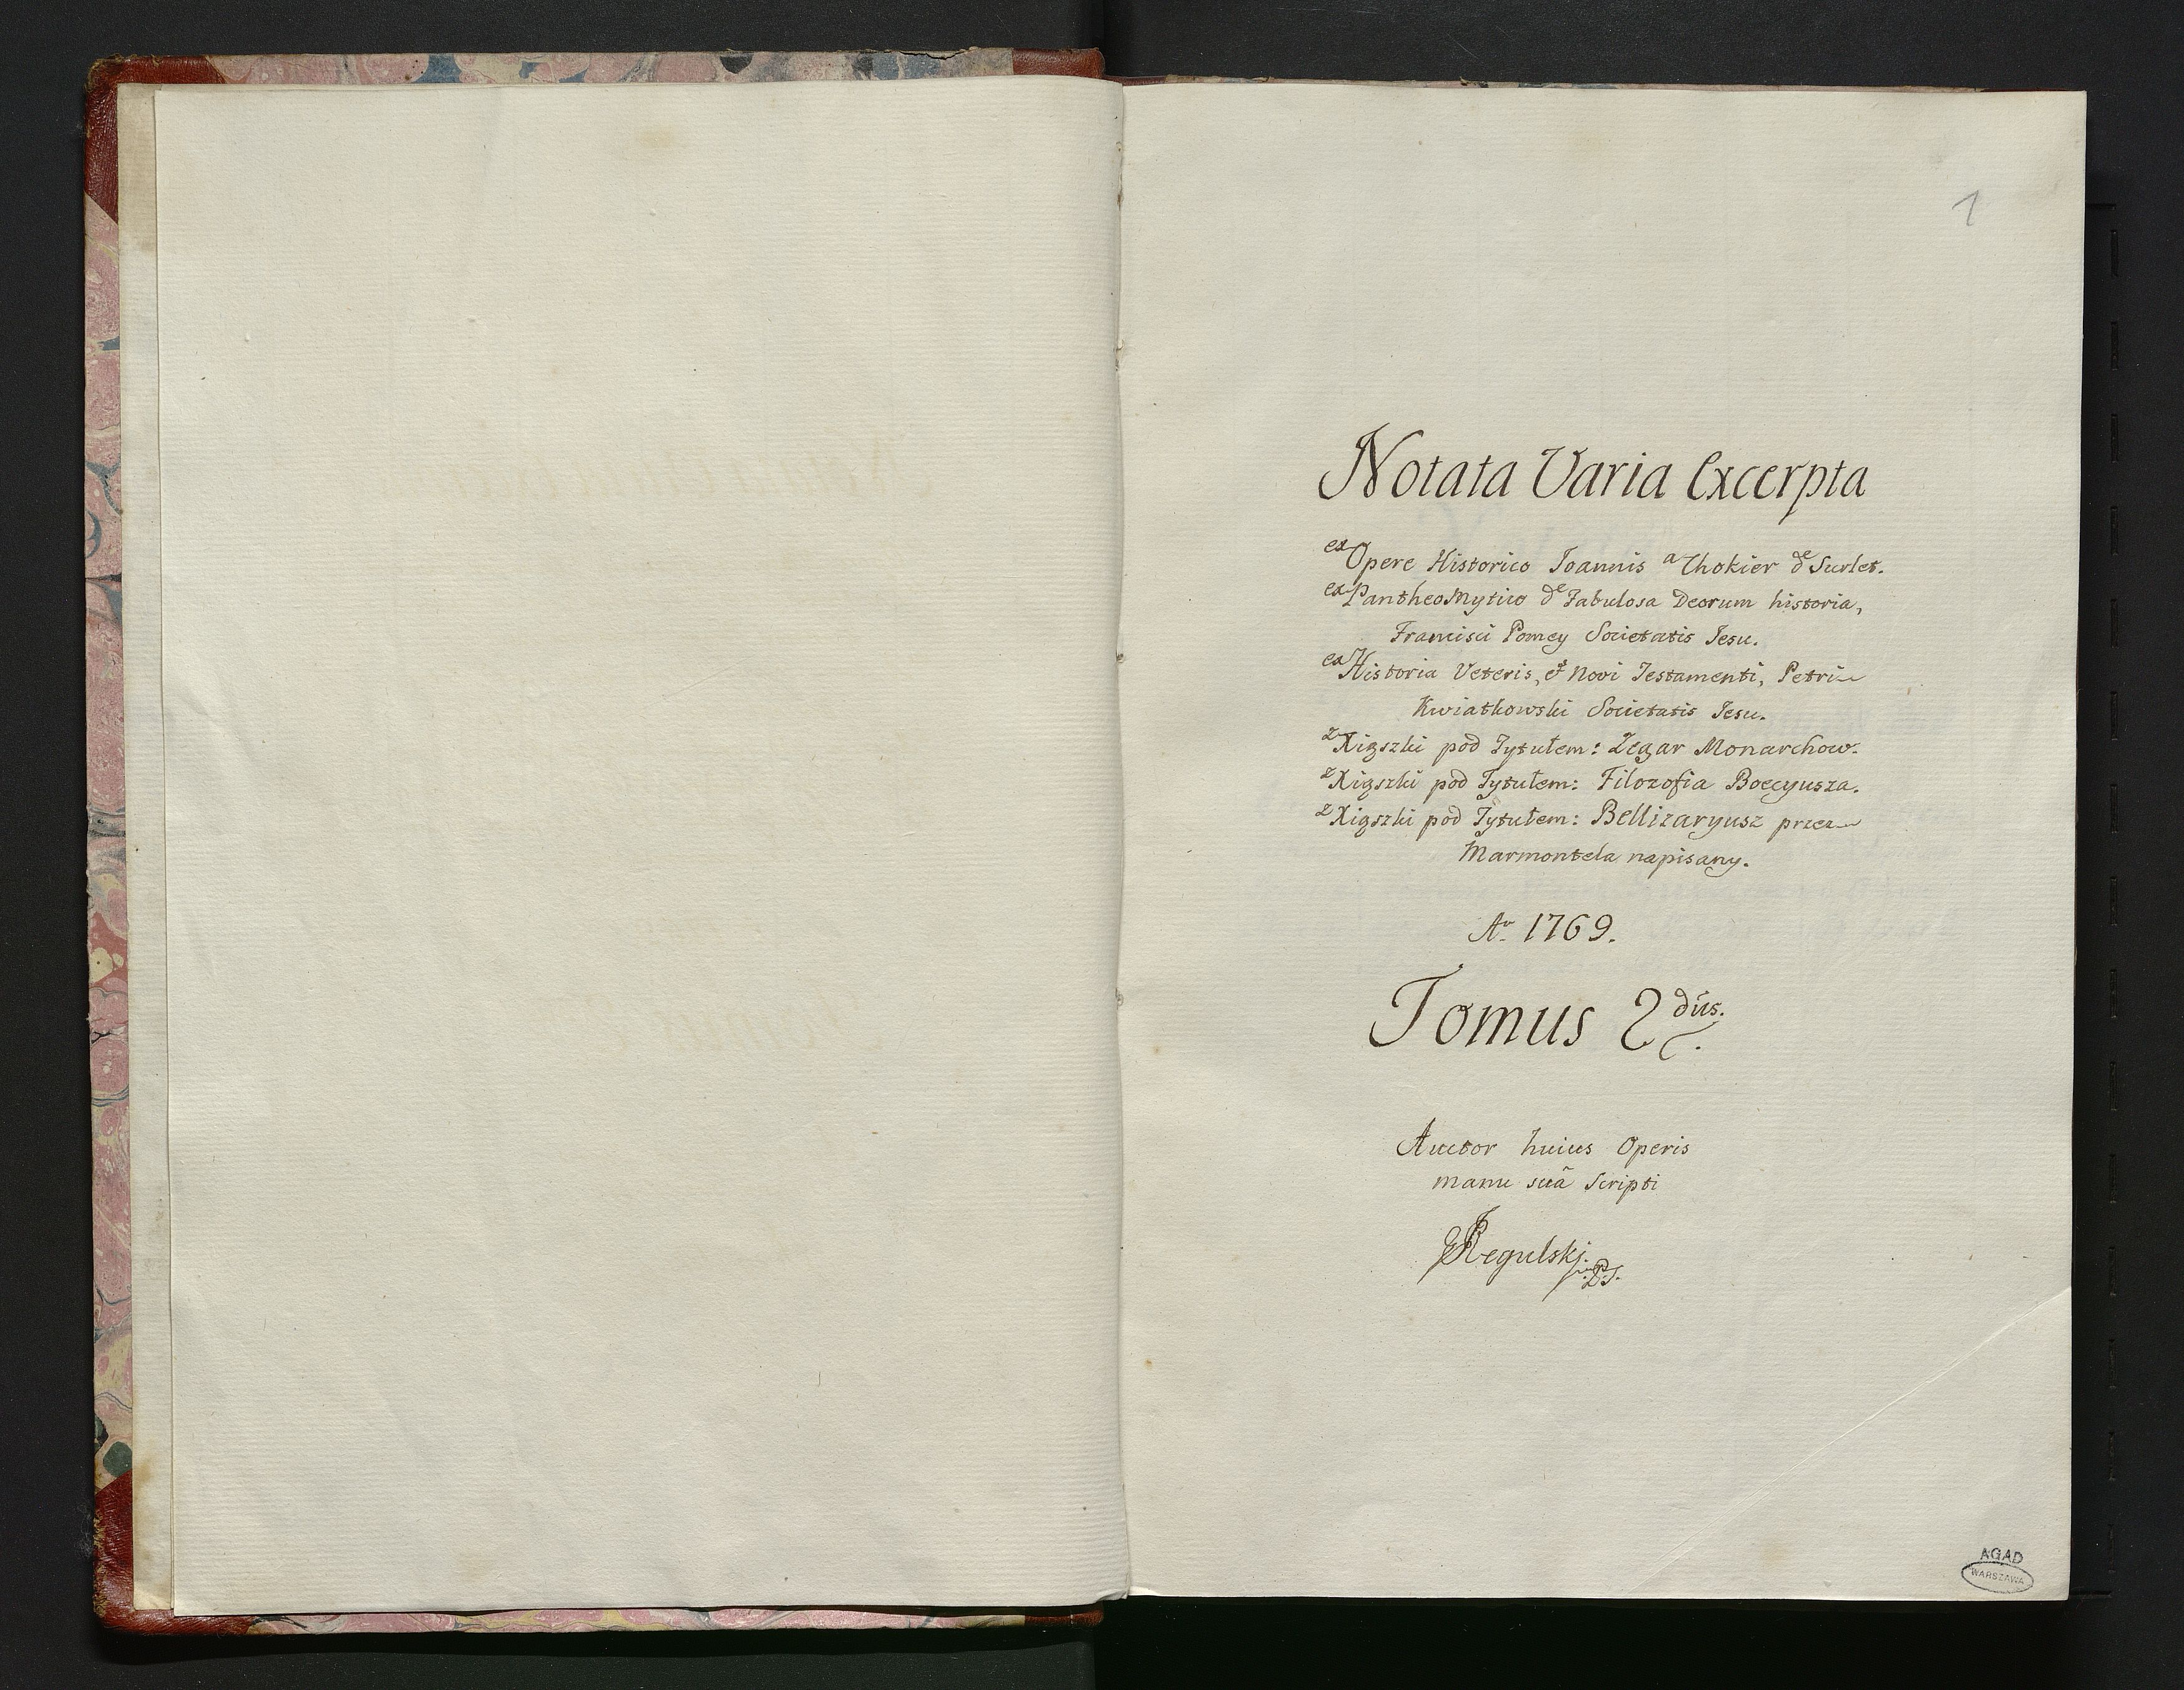 1
Notata Varia Excerpta
ex Opere Historico Ioannis a Chokier de Surlet.
ex Pantheo Mytico de Fabulosa Deorum historia,
Francisci Pomey Societatis Iesu.
ex Historia Veteris, et Novi Testamenti, Petri
Kwiatkowski Societatis Iesu.
z Xiąszki pod Tytułem: Zegar Monarchow.
z Xiąszki pod Tytułem: Filozofia Boecyusza.
z Xiąszki pod Tytułem: Bellizaryusz przez
Marmontela napisany.
Ao 1769.
Tomus 2dus.
Auctor huius Operis
manu suã Scripti
Regulski
AGAD
WARSZAWA